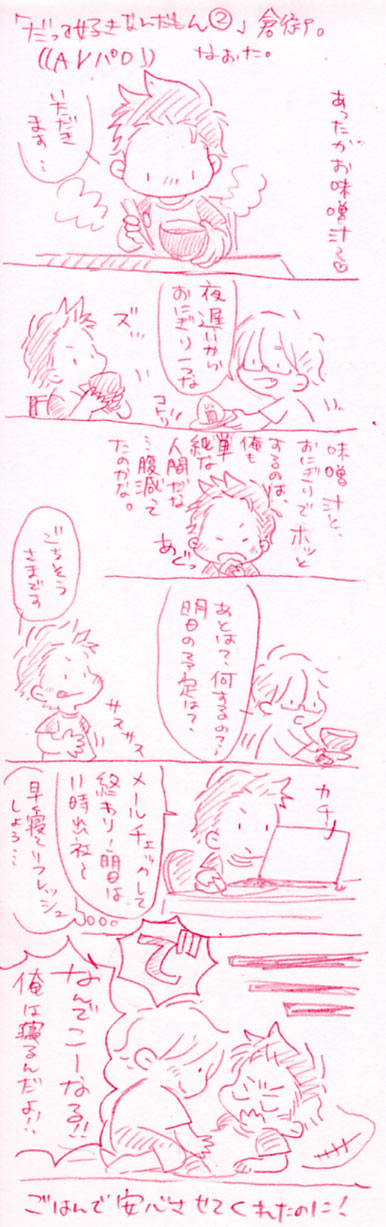 「だって好きなんだもん②」倉御P。
((Aレパロ)) なおた。
あったかお味噌汁~♡
いただき
ます…
夜遅いから
おにぎり一つな
コトッ
ズ…
味噌汁と、
おにぎりでホッと
するのは、
俺も
単純な
人間だな
…腹減って
たのかな。
あぐっ
あとは?何するの?
明日の予定は?
ごちそう
さまです
サスサス
カチッ
メールチェックして
終わり!明日は
11時出社~
早寝でリフレッシュ
しよう…
で!!!
なんでこーなる!!
俺は寝るんだよ!!
ごはんで安心させてくれたのに!